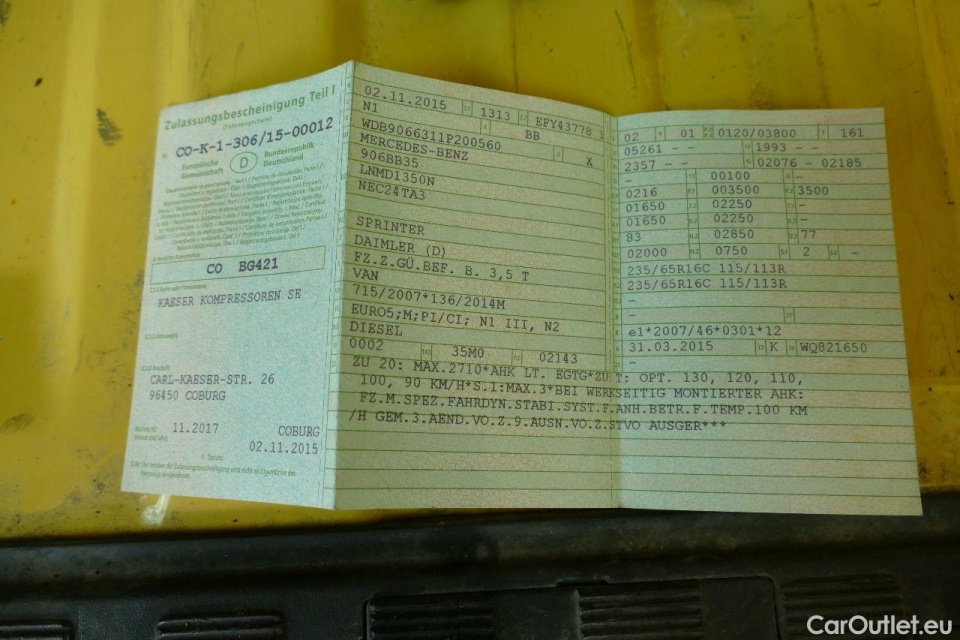 Zulassungsbescheinigung Teil I
(Fahrzeugschein)
CO-K-1-306/15-00012
Europäische Gemeinschaft
D
Bundesrepublik Deutschland
CO BG421
KAESER KOMPRESSOREN SE
CARL-KAESER-STR. 26
96450 COBURG
11.2017 COBURG
02.11.2015
02.11.2015 1313 EFY43778 1
N1 BB
WDB9066311P200560 X
MERCEDES-BENZ
906BB35
LNMD1350N
NEC24TA3
SPRINTER
DAIMLER (D)
FZ.Z.GÜ.BEF. B. 3,5 T
VAN
715/2007*136/2014M
EURO5;M;PI/CI; N1 III, N2
DIESEL
0002 35M0 02143
02 01 0120/03800 161
05261 - - 1993 - -
2357 - - 02076 - 02185
- 00100 -
0216 003500 3500
01650 02250 -
01650 02250 -
83 02850 77
02000 0750 2 -
235/65R16C 115/113R
235/65R16C 115/113R
-
-
e1*2007/46*0301*12
31.03.2015 K WQ821650
-
ZU 20: MAX.2710*AHK LT. EGTG*ZU T: OPT. 130, 120, 110,
100, 90 KM/H*S.1:MAX.3*BEI WERKSEITIG MONTIERTER AHK:
FZ.M.SPEZ.FAHRDYN.STABI.SYST.F.ANH.BETR.F.TEMP.100 KM
/H GEM.3.AEND.VO.Z.9.AUSN.VO.Z.STVO AUSGER***
CarOutlet.eu